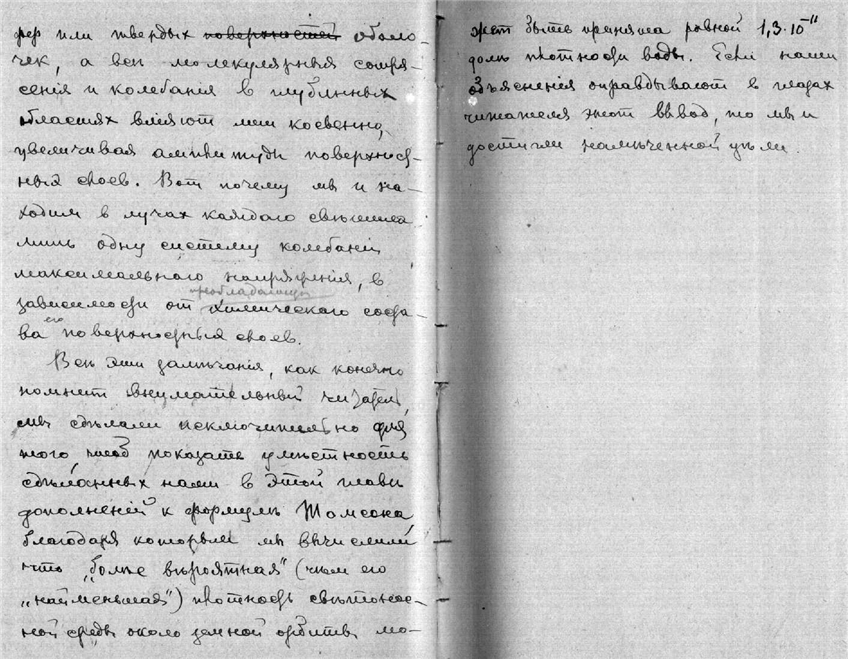 фер или твердых поверхностей оболо-
чек, а все молекулярныя сотря-
сенія и колебанія в глубинных
областях вліяют лишь косвенно,
увеличивая амплитуды поверхност-
ных слоев. Вот почему мы и на-
ходим в лучах каждаго свѣтила
лишь одну систему колебаній
максимальнаго напряженія, в
преобладающ
зависимости от химическаго соста-
ва его поверхностных слоев.
Всѣ эти замѣчанія, как конечно
помнит внимательный читатель,
мы сдѣлали исключительно для
того чтоб показать умѣстность
сдѣланных нами в этой главѣ
дополненій к формулѣ Томсона,
благодаря которым мы вычислили,
что „болѣе вѣроятная" (чѣм его
„наименьшая") плотность свѣтонос-
ной среды около земной орбиты мо-
жет быть принята равной 1,3·10
долѣ плотности воды. Если наши
объясненія оправдывают в глазах
читателя этот вывод, то мы и
достигли намѣченной цѣли.